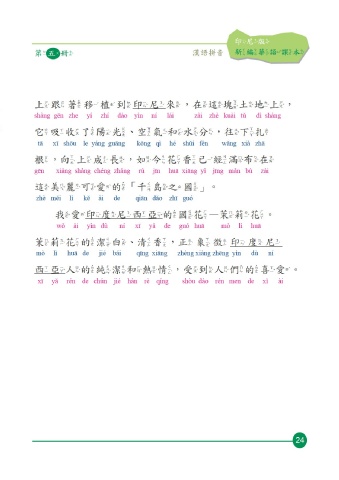 印尼版
第五冊
漢語拼音
新編華語課本
上跟著移植到印尼來，在這塊土地上，
shàng gēn zhe yí zhí dào yìn ní lái zài zhè kuài tǔ dì shàng
它吸收了陽光、空氣和水分，往下扎
tā xī shōu le yáng guāng kōng qì hé shuǐ fèn wǎng xià zhā
根，向上成長，如今花香已經滿布在
gēn xiàng shàng chéng zhǎng rú jīn huā xiāng yǐ jīng mǎn bù zài
這美麗可愛的「千島之國」。
zhè měi lì kě ài de qiān dǎo zhī guó
我愛印度尼西亞的國花—茉莉花。
wǒ ài yìn dù ní xī yà de guó huā mò lì huā
茉莉花的潔白、清香，正象徵印度尼
mò lì huā de jié bái qīng xiāng zhèng xiàng zhēng yìn dù ní
西亞人的純潔和熱情，受到人們的喜愛。
xī yà rén de chún jié hàn rè qíng shòu dào rén men de xǐ ài
24